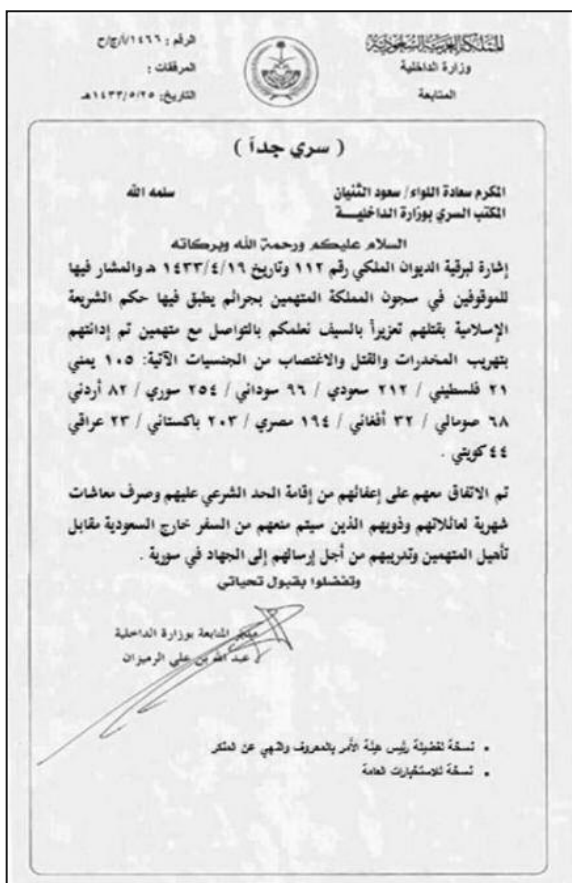 المملكة العربية السعودية
وزارة الداخلية
المتابعة
الرقم : ١٤٦٦/أ/ج/ح
المرفقات :
التاريخ: ١٤٣٣/٥/٢٥هـ
( سري جداً )
المكرم سعادة اللواء/ سعود الثنيان سلمه الله
المكتب السري بوزارة الداخليـــة
السلام عليكم ورحمة الله وبركاته
إشارة لبرقية الديوان الملكي رقم ١١٢ وتاريخ ١٤٣٣/٤/١٦ هـ والمشار فيها
للموقوفين في سجون المملكة المتهمين بجرائم يطبق فيها حكم الشريعة
الإسلامية بقتلهم تعزيراً بالسيف نعلمكم بالتواصل مع متهمين تم إدانتهم
بتهريب المخدرات والقتل والاغتصاب من الجنسيات الآتية: ١٠٥ يمني
٢١ فلسطيني / ٢١٢ سعودي / ٩٦ سوداني / ٢٥٤ سوري / ٨٢ أردني
٦٨ صومالي / ٣٢ أفغاني / ١٩٤ مصري / ٢٠٣ باكستاني / ٢٣ عراقي
٤٤ كويتي .
تم الاتفاق معهم على إعفائهم من إقامة الحد الشرعي عليهم وصرف معاشات
شهرية لعائلاتهم وذويهم الذين سيتم منعهم من السفر خارج السعودية مقابل
تأهيل المتهمين وتدريبهم من أجل إرسالهم إلى الجهاد في سورية .
وتفضلوا بقبول تحياتي
مدير المتابعة بوزارة الداخلية
عبد الله بن علي الرميزان
• نسخة لفضيلة رئيس هيئة الأمر بالمعروف والنهي عن المنكر
• نسخة للاستخبارات العامة